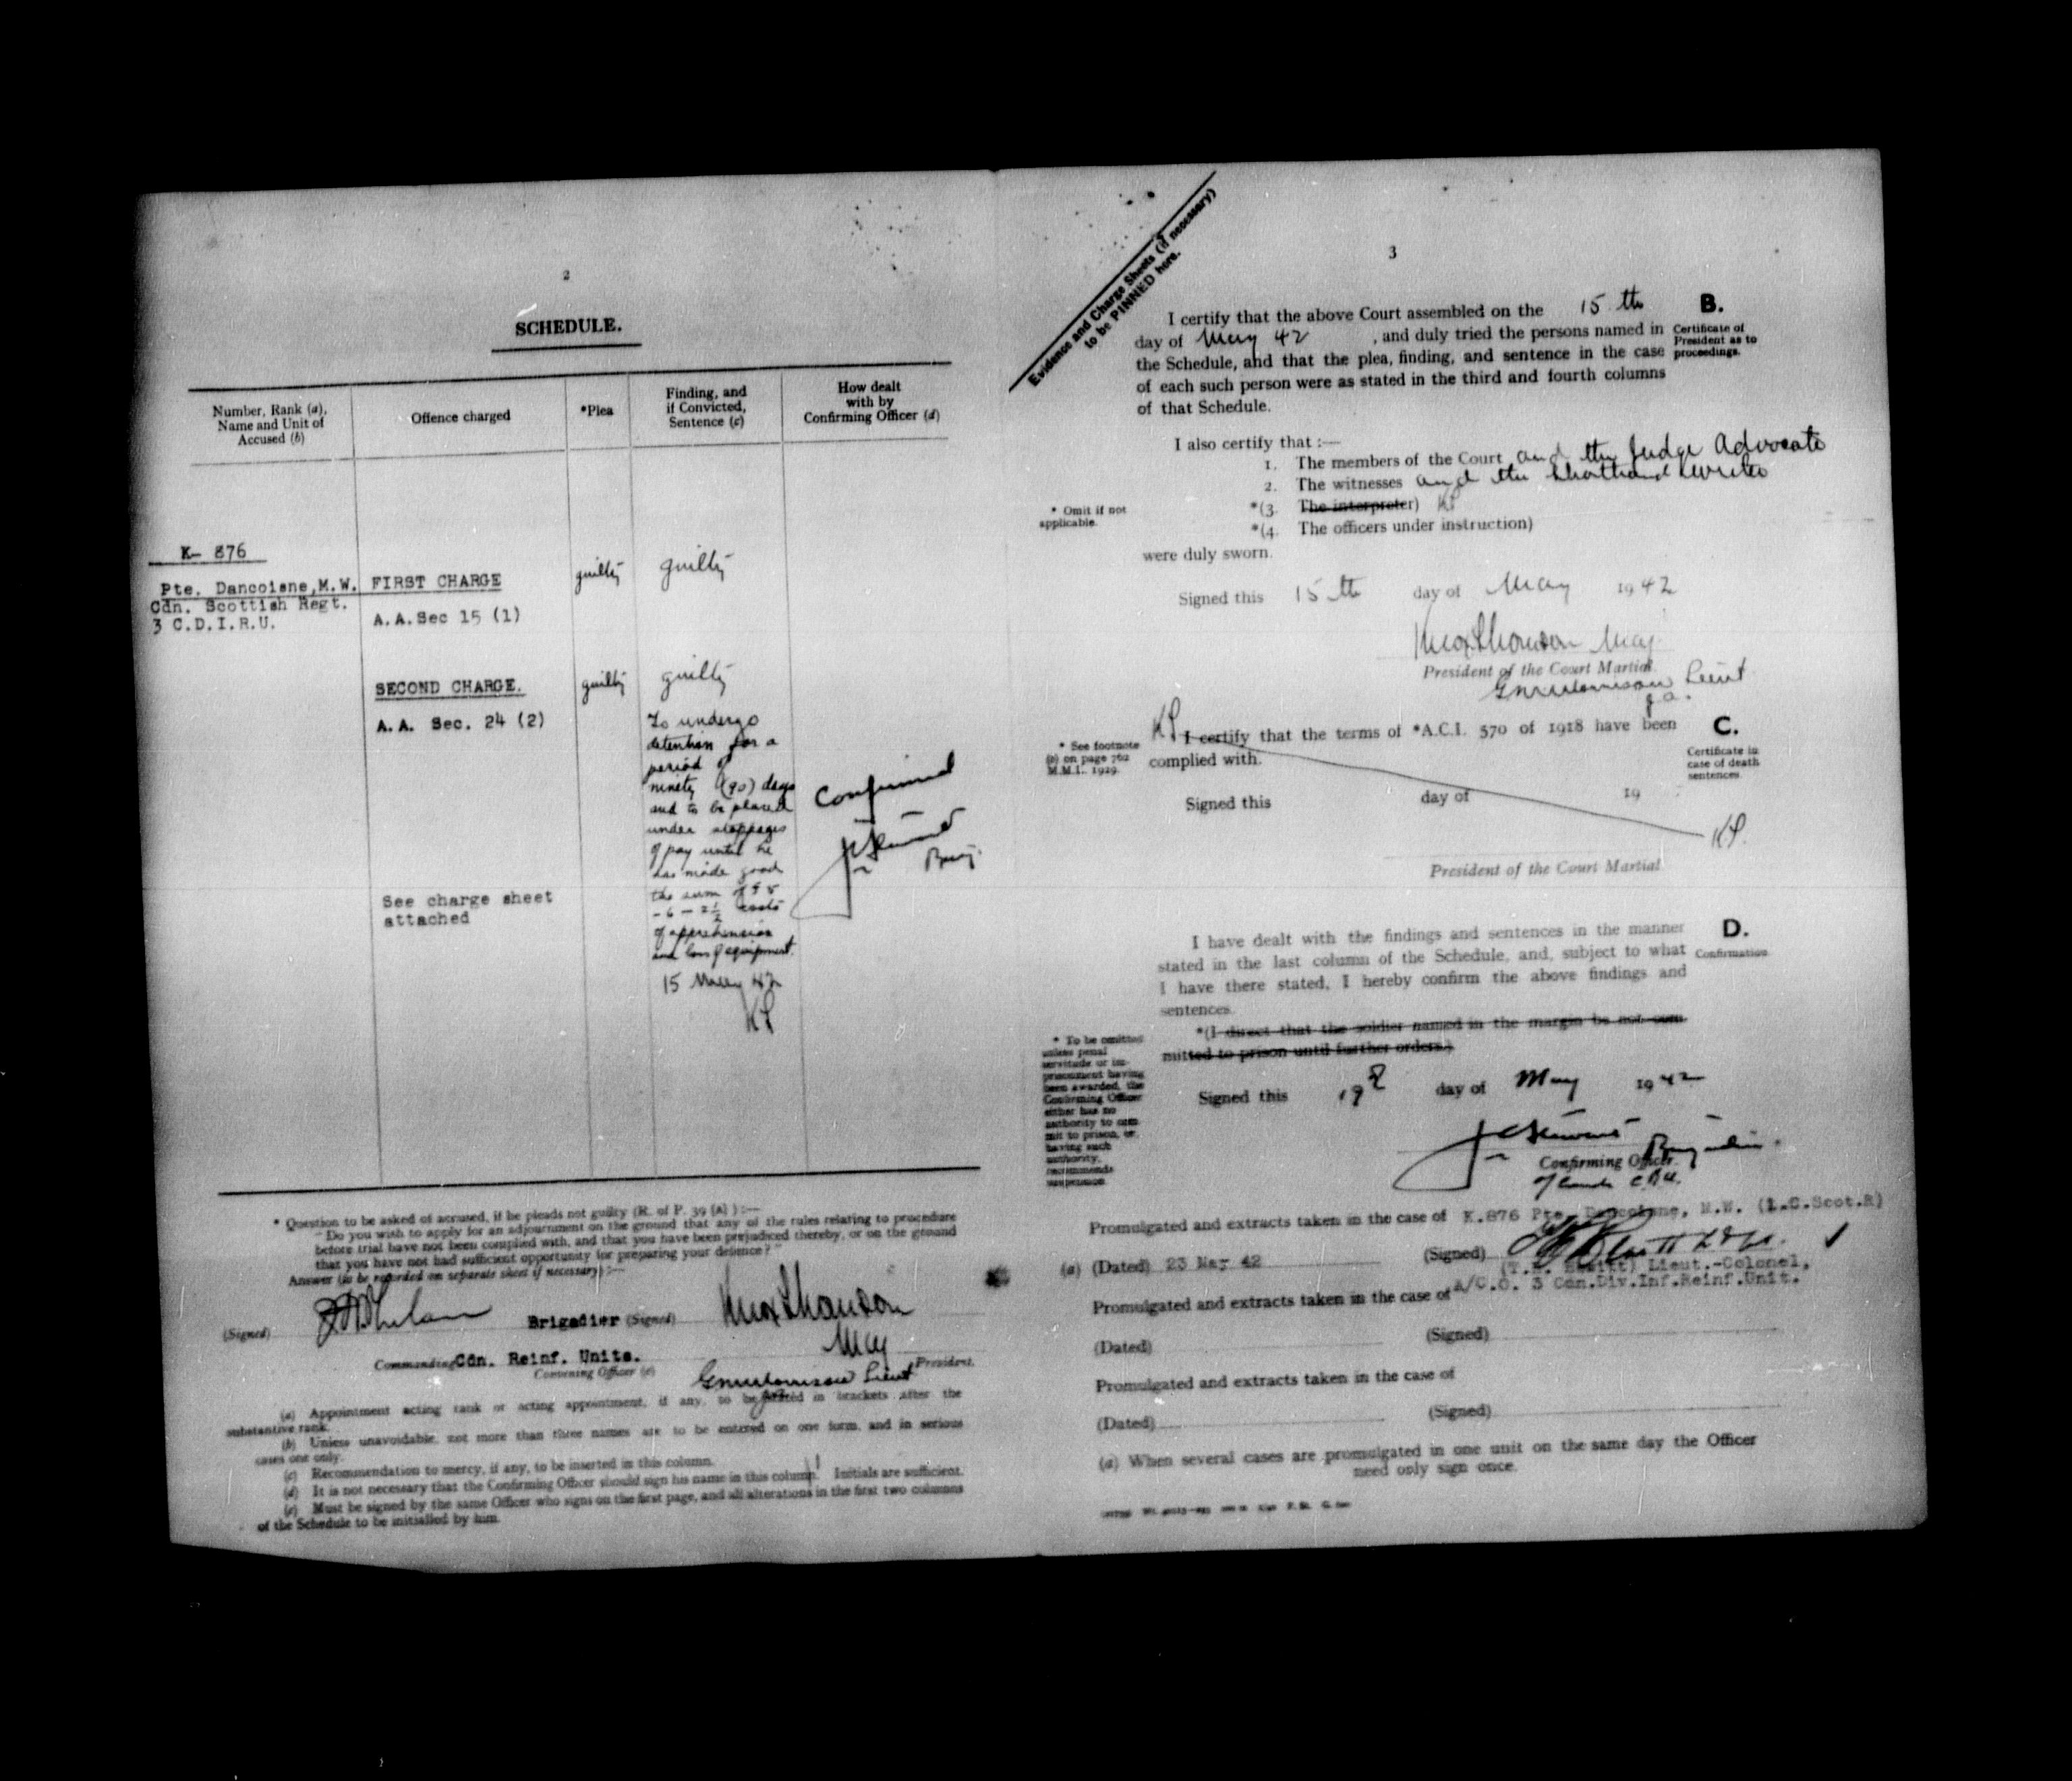 2
SCHEDULE.
Number, Rank (a),
Name and Unit of
Accused (b)
Offence charged
*Plea
Finding, and
if Convicted,
Sentence (c)
How dealt
with by
Confirming Officer (d)
K- 876
Pte. Dancoisne,M.W.
Cdn. Scottish Regt.
3 C.D.I.R.U.
FIRST CHARGE
A.A.Sec 15 (1)
guilty
guilty
SECOND CHARGE.
A.A. Sec. 24 (2)
guilty
guilty
To undergo
detention for a
period of
ninety (90) days
and to be placed
under stoppages
of pay until he
has made good
the sum of £5
-6-2½ costs
of apprehension
and loss of equipment.
15 May 42
KS
Confirmed
Brig.
See charge sheet
attached
* Question to be asked of accused, if he pleads not guilty (R. of P. 39 (A) ) :—
" Do you wish to apply for an adjournment on the ground that any of the rules relating to procedure
before trial have not been complied with, and that you have been prejudiced thereby, or on the ground
that you have not had sufficient opportunity for preparing your defence? "
Answer (to be recorded on separate sheet if necessary) :—
(Signed) Brigadier (Signed)
Maj
Commanding Cdn. Reinf. Units. President.
Convening Officer (e)
Lieut
(a) Appointment acting rank or acting appointment, if any, to be stated in brackets after the
substantive rank.
(b) Unless unavoidable, not more than three names are to be entered on one form, and in serious
cases one only.
(c) Recommendation to mercy, if any, to be inserted in this column.
(d) It is not necessary that the Confirming Officer should sign his name in this column. Initials are sufficient.
(e) Must be signed by the same Officer who signs on the first page, and all alterations in the first two columns
of the Schedule to be initialled by him.
Evidence and Charge Sheets (if necessary)
to be PINNED here.
3
I certify that the above Court assembled on the 15 th
day of May 42 , and duly tried the persons named in
the Schedule, and that the plea, finding, and sentence in the case
of each such person were as stated in the third and fourth columns
of that Schedule.
B.
Certificate of
President as to
proceedings.
I also certify that :—
1. The members of the Court and the Judge Advocate
2. The witnesses and the shorthand writer
*(3. The interpreter) KS
*(4. The officers under instruction)
* Omit if not
applicable.
were duly sworn.
Signed this 15 th day of May 1942
Maj
President of the Court Martial.
Lieut
J.A.
KS I certify that the terms of *A.C.I. 570 of 1918 have been
complied with.
* See footnote
(b) on page 762
M.M.L. 1929.
C.
Certificate in
case of death
sentences.
Signed this day of 19
KS.
President of the Court Martial
I have dealt with the findings and sentences in the manner
stated in the last column of the Schedule, and, subject to what
I have there stated, I hereby confirm the above findings and
sentences.
D.
Confirmation.
*(I direct that the soldier named in the margin be not com-
mitted to prison until further orders.)
* To be omitted
unless penal
servitude or im-
prisonment having
been awarded, the
Confirming Officer
either has no
authority to com-
mit to prison, or,
having such
authority,
recommends
suspension
Signed this 19 day of May 1942
Brigadier
Confirming Officer.
Promulgated and extracts taken in the case of K.876 Pte. Dancoisne, M.W. (1.C.Scot.R)
(a) (Dated) 23 May 42 (Signed)
Lieut.-Colonel,
A/C.O. 3 Cdn.Div.Inf.Reinf.Unit.
Promulgated and extracts taken in the case of
(Dated) (Signed)
Promulgated and extracts taken in the case of
(Dated) (Signed)
(a) When several cases are promulgated in one unit on the same day the Officer
need only sign once.